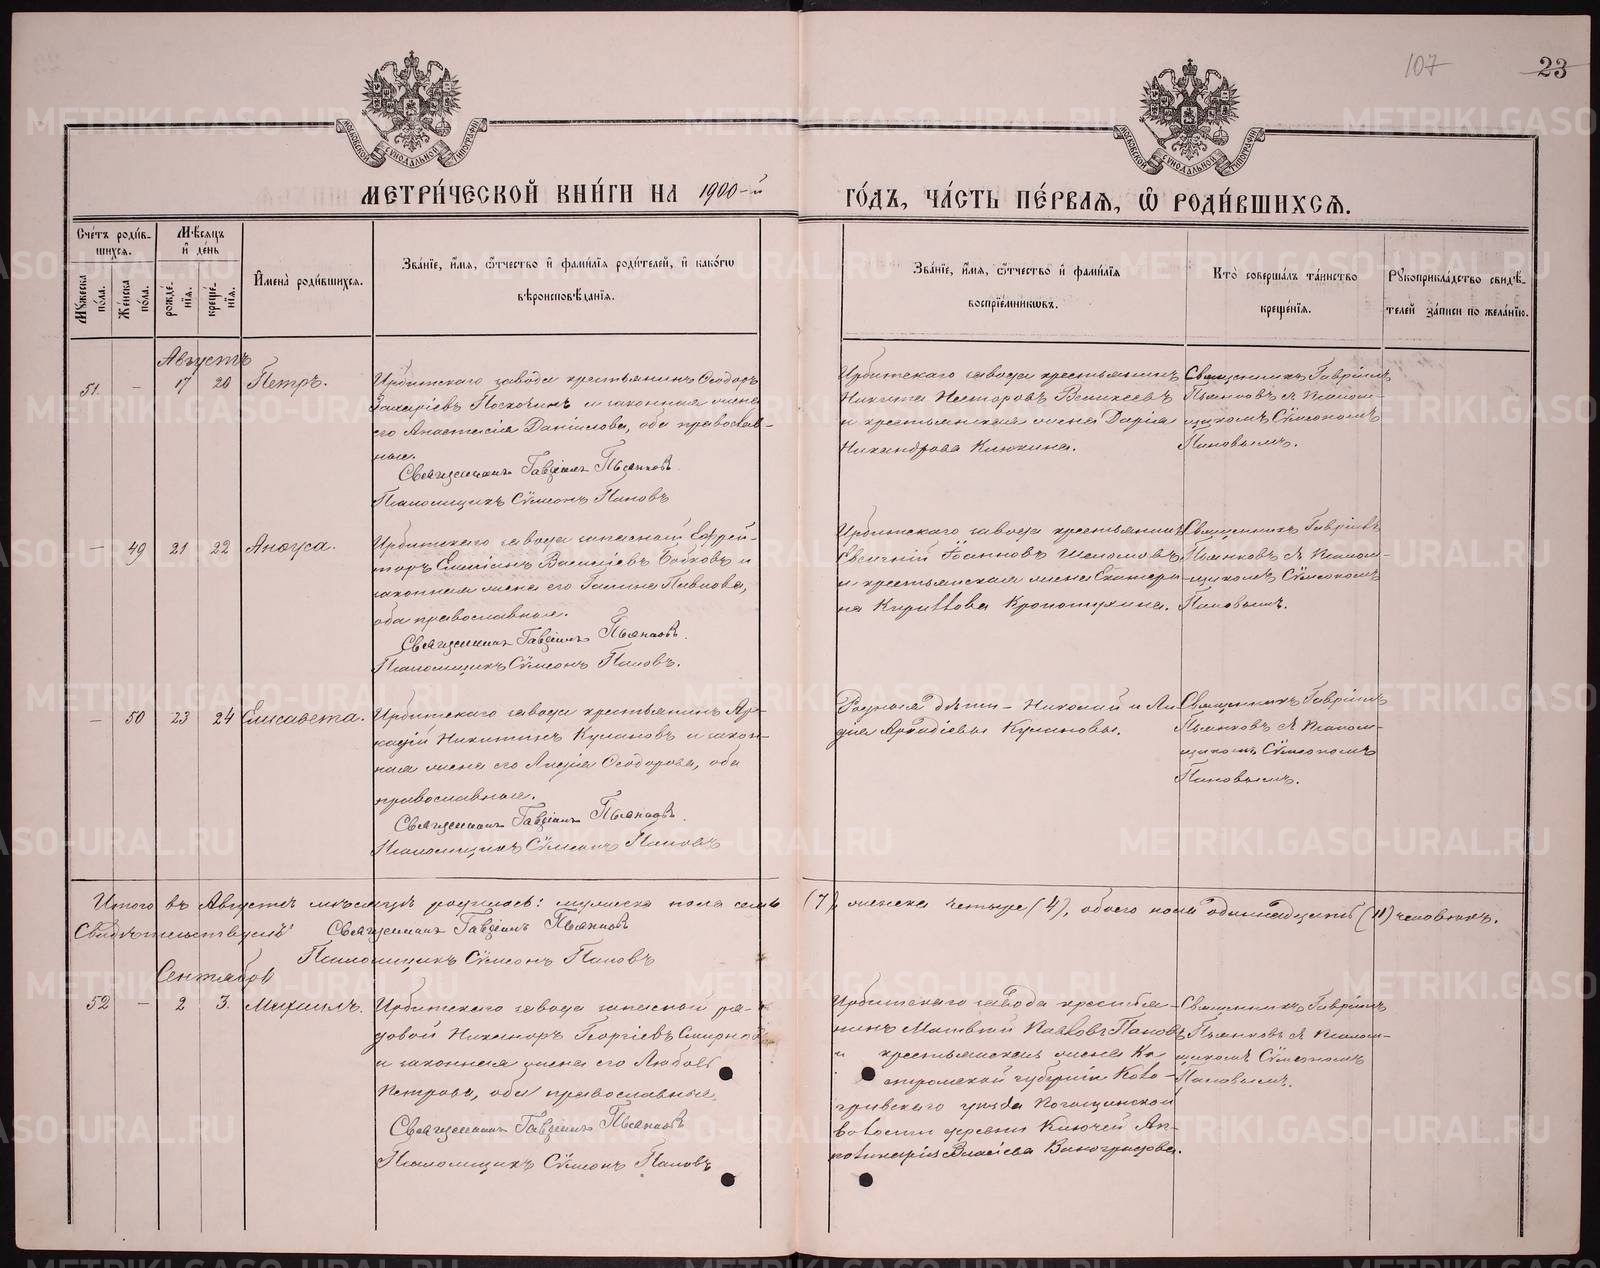 107 23
МОСКОВСКОЙ СУНОДАЛЬНОЙ ТИПОГРАФІИ
МОСКОВСКОЙ СУНОДАЛЬНОЙ ТИПОГРАФІИ
МЕТРИ́ЧЕСКОЙ КНИ́ГИ НА 1900-й
ГО́ДЪ, ЧА́СТЬ ПЕ́РВАЯ, Ѡ҆ РОДИ́ВШИХСЯ.
Сче́тъ роди́в-
шихся.
Мꙋ́жеска по́ла.
Же́нска по́ла.
Мѣ́сяцъ
и҆ де́нь
рожде́нїя.
креще́нїя.
И҆мена̀ роди́вшихся.
Зва́нїе, и҆́мя, ѻ҆́тчество и҆ фами́лїя роди́телей, и҆ како́гѡ
вѣроисповѣ́данїя.
Зва́нїе, и҆́мя, ѻ҆́тчество и҆ фами́лїя
воспрїе́мникѡвъ.
Кто̀ соверша́лъ та́инство
креще́нїя.
Рꙋкоприкла́дство свидѣ́-
телей за́писи по жела́нїю.
Августъ
51. - 17 20 Петръ.
Ирбитскаго завода крестьянинъ Ѳеодоръ
и законная жена
его Анастасія Даніилова, оба православ-
ные.
Священникъ Гавріилъ Пьянковъ.
Псаломщикъ Сѵмеонъ Поповъ
Ирбитскаго завода крестьянинъ
Никита Несторовъ
и крестьянская жена Дарія
Никандрова Клюкина.
Священникъ Гавріилъ
Пьянковъ съ Псалом-
щикомъ Сѵмеономъ
Поповымъ.
- 49 21 22 Анѳуса.
Ирбитскаго завода запасной Ефрей-
торъ Василіевъ Бобковъ и
законная жена его Галина Павлова,
оба православные.
Священникъ Гавріилъ Пьянковъ.
Псаломщикъ Сѵмеонъ Поповъ.
Ирбитскаго завода крестьянинъ
Евгеній Іоанновъ Шеломовъ
и крестьянская жена Екатери-
на Кириллова Кропотухина.
Священникъ Гавріилъ
Пьянковъ съ Псалом-
щикомъ Сѵмеономъ
Поповымъ.
- 50 23 24 Елисавета.
Ирбитскаго завода крестьянинъ Ар-
кадій Никитинъ Кулановъ и закон-
ная жена его Лидія Ѳеодорова, оба
православные.
Священникъ Гавріилъ Пьянковъ.
Псаломщикъ Сѵмеонъ Поповъ
Родныя дѣти - Николай и Ли-
дія Аркадіевы Кулановы.
Священникъ Гавріилъ
Пьянковъ съ Псалом-
щикомъ Сѵмеономъ
Поповымъ.
Итого въ Августѣ мѣсяцѣ родилось: мужеска пола семь (7), женска четыре (4), обоего пола одиннадцать (11) человѣкъ.
Свидѣтельствуемъ Священникъ Гавріилъ Пьянковъ
Псаломщикъ Сѵмеонъ Поповъ
Сентябрь
52 - 2 3. Михаилъ.
Ирбитскаго завода запасной ря-
довой Никаноръ Георгіевъ Смирновъ
и законная жена его Любовь
Петрова, оба православные.
Священникъ Гавріилъ Пьянковъ
Псаломщикъ Сѵмеонъ Поповъ
Ирбитскаго завода крестья-
нинъ Матвѣй Павловъ Поповъ
и крестьянская жена Ко-
стромской губерніи Коло-
гривскаго уѣзда
волости деревни Ключей Ап-
полинарія Власіева Виноградова.
Священникъ Гавріилъ
Пьянковъ съ Псалом-
щикомъ Сѵмеономъ
Поповымъ.
METRIKI.GASO-URAL.RU